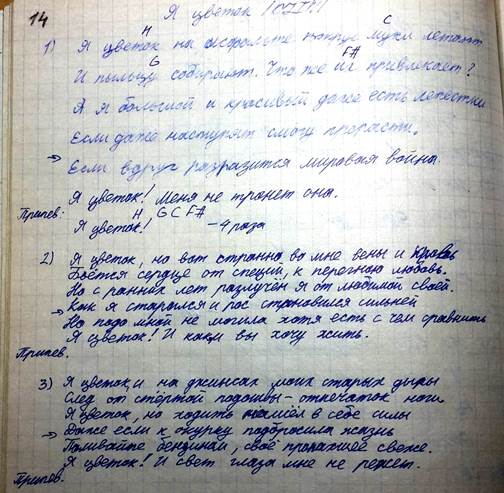 14
Я цветок
H C
1) Я цветок на асфальте вокруг мухи летают
G F#
И пыльцу собирают. Что же их привлекает?
А я большой и красивый даже есть лепестки
Если даже наступят смогу прорасти.
→ Если вдруг разразится мировая война
Я цветок! Меня не тронет она.
Припев: H G C F#
Я цветок! - 4 раза
2) Я цветок, но вот странно во мне вены и кровь
Бьётся сердце от специй, к перегною любовь.
Но с ранних лет разлучён я от любимой своей.
→ Как я старался и рос становился сильней
Но подо мной не могила хотя есть с чем сравнить
Я цветок! И как вы хочу жить.
Припев.
3) Я цветок и на джинсах моих старых дыры
След от стёртой подошвы - отпечаток ноги
Я цветок, но ходить нашёл в себе силы
→ Даже если к окурку подбросила жизнь
Поливайте бензином, своё пропахшее свеже.
Я цветок! И свет глаза мне не режет.
Припев.